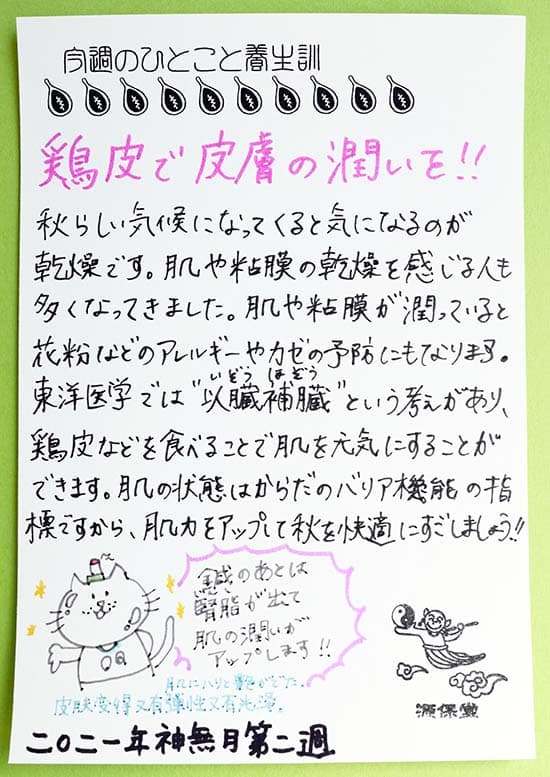 今週のひとこと養生訓
鶏皮で皮膚の潤いを!!
秋らしい気候になってくると気になるのが
乾燥です。肌や粘膜の乾燥を感じる人も
多くなってきました。肌や粘膜が潤っていると
花粉などのアレルギーやカゼの予防にもなります。
いぞう ほぞう
東洋医学では“以臓補臓”という考えがあり、
鶏皮などを食べることで肌を元気にすることが
できます。肌の状態はからだのバリア機能の指
標ですから、肌力をアップして秋を快適にすごしましょう!!
鍼のあとは
腎脂が出て
肌の潤いが
アップします!!
肌にハリと艶がでた。
皮肤变得又有弹性又有光泽。
源保堂
二〇二一年神無月第二週